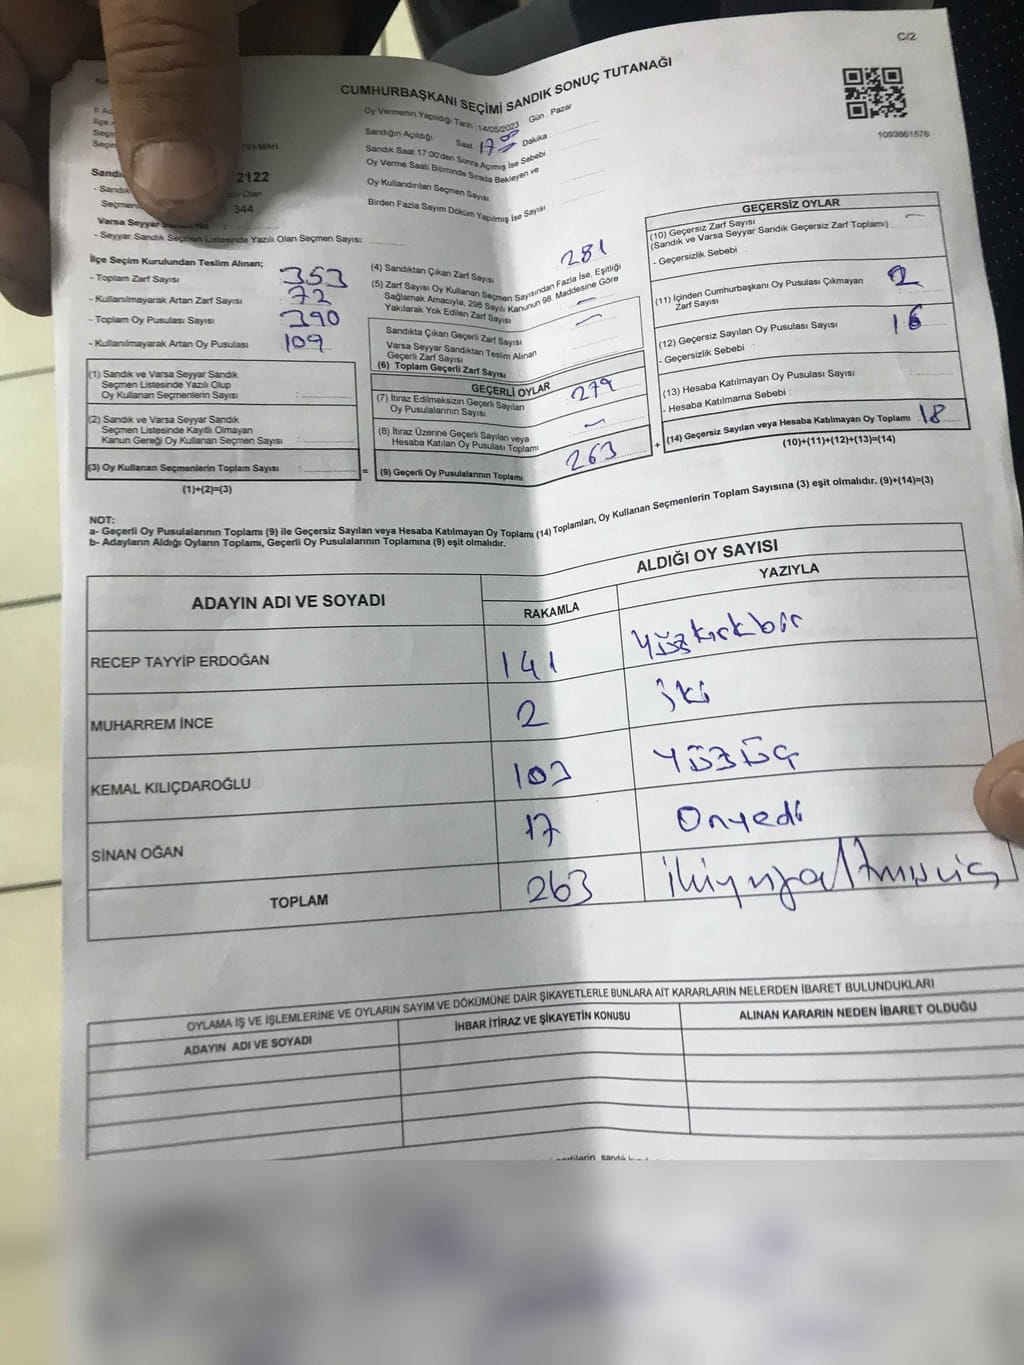 C/2
CUMHURBAŞKANI SEÇİMİ SANDIK SONUÇ TUTANAĞI
1093861576
Oy Vermenin Yapıldığı Tarih : 14/05/2023 Gün : Pazar
Sandığın Açıldığı Saat 17 00 Dakika
Sandık Saat 17:00'den Sonra Açımış İse Sebebi :
Oy Verme Saati Bitiminde Sırada Bekleyen ve
Oy Kullandırılan Seçmen Sayısı
Birden Fazla Sayım Döküm Yapılmış İse Sayısı
MAH.
2122
344
Varsa Seyyar
- Seyyar Sandık Seçmen Listesinde Yazılı Olan Seçmen Sayısı:
İlçe Seçim Kurulundan Teslim Alınan;
- Toplam Zarf Sayısı 353
- Kullanılmayarak Artan Zarf Sayısı 72
- Toplam Oy Pusulası Sayısı 390
- Kullanılmayarak Artan Oy Pusulası 109
(1) Sandık ve Varsa Seyyar Sandık
Seçmen Listesinde Yazılı Olup
Oy Kullanan Seçmenlerin Sayısı :
(2) Sandık ve Varsa Seyyar Sandık
Seçmen Listesinde Kayıtlı Olmayan
Kanun Gereği Oy Kullanan Seçmen Sayısı :
(3) Oy Kullanan Seçmenlerin Toplam Sayısı :
(1)+(2)=(3)
(4) Sandıktan Çıkan Zarf Sayısı 281
(5) Zarf Sayısı Oy Kullanan Seçmen Sayısından Fazla İse, Eşitliği
Sağlamak Amacıyla, 298 Sayılı Kanunun 98. Maddesine Göre
Yakılarak Yok Edilen Zarf Sayısı
Sandıkta Çıkan Geçerli Zarf Sayısı
Varsa Seyyar Sandıktan Teslim Alınan
Geçerli Zarf Sayısı
(6) Toplam Geçerli Zarf Sayısı
GEÇERLİ OYLAR
(7) İtiraz Edilmeksizin Geçerli Sayılan
Oy Pusulalarının Sayısı
279
(8) İtiraz Üzerine Geçerli Sayılan veya
Hesaba Katılan Oy Pusulası Toplamı
= (9) Geçerli Oy Pusulalarının Toplamı 263 +
GEÇERSİZ OYLAR
(10) Geçersiz Zarf Sayısı
(Sandık ve Varsa Seyyar Sandık Geçersiz Zarf Toplamı) :
- Geçersizlik Sebebi :
(11) İçinden Cumhurbaşkanı Oy Pusulası Çıkmayan
Zarf Sayısı
2
(12) Geçersiz Sayılan Oy Pusulası Sayısı 16
- Geçersizlik Sebebi :
(13) Hesaba Katılmayan Oy Pusulası Sayısı
- Hesaba Katılmama Sebebi :
(14) Geçersiz Sayılan veya Hesaba Katılmayan Oy Toplamı 18
(10)+(11)+(12)+(13)=(14)
NOT:
a- Geçerli Oy Pusulalarının Toplamı (9) ile Geçersiz Sayılan veya Hesaba Katılmayan Oy Toplamı (14) Toplamları, Oy Kullanan Seçmenlerin Toplam Sayısına (3) eşit olmalıdır. (9)+(14)=(3)
b- Adayların Aldığı Oyların Toplamı, Geçerli Oy Pusulalarının Toplamına (9) eşit olmalıdır.
ADAYIN ADI VE SOYADI
ALDIĞI OY SAYISI
RAKAMLA YAZIYLA
RECEP TAYYİP ERDOĞAN 141 yüzkırkbir
MUHARREM İNCE 2 iki
KEMAL KILIÇDAROĞLU 103 YÜZÜÇ
SİNAN OĞAN 17 Onyedi
TOPLAM 263 ikiyüzaltmışüç
OYLAMA İŞ VE İŞLEMLERİNE VE OYLARIN SAYIM VE DÖKÜMÜNE DAİR ŞİKAYETLERLE BUNLARA AİT KARARLARIN NELERDEN İBARET BULUNDUKLARI
ADAYIN ADI VE SOYADI İHBAR İTİRAZ VE ŞİKAYETİN KONUSU ALINAN KARARIN NEDEN İBARET OLDUĞU